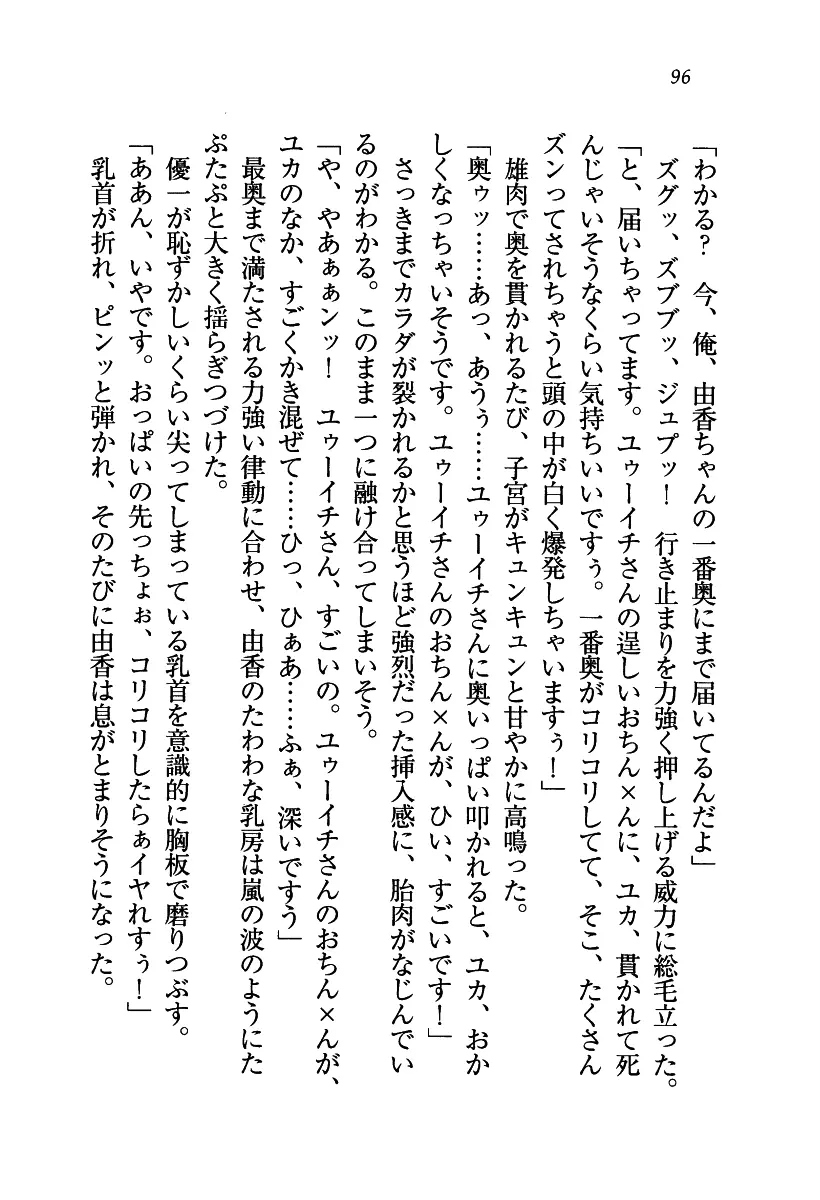 96
「わかる？　今、俺、由香ちゃんの一番奥にまで届いてるんだよ」
　ズグッ、ズブブッ、ジュプッ！　行き止まりを力強く押し上げる威力に総毛立った。
「と、届いちゃってます。ユゥーイチさんの逞しいおちん×んに、ユカ、貫かれて死
んじゃいそうなくらい気持ちいいですぅ。一番奥がコリコリしてて、そこ、たくさん
ズンってされちゃうと頭の中が白く爆発しちゃいますぅ！」
　雄肉で奥を貫かれるたび、子宮がキュンキュンと甘やかに高鳴った。
「奥ゥッ……あっ、あうぅ……ユゥーイチさんに奥いっぱい叩かれると、ユカ、おか
しくなっちゃいそうです。ユゥーイチさんのおちん×んが、ひい、すごいです！」
　さっきまでカラダが裂かれるかと思うほど強烈だった挿入感に、胎肉がなじんでい
るのがわかる。このまま一つに融け合ってしまいそう。
「や、やあぁぁンッ！　ユゥーイチさん、すごいの。ユゥーイチさんのおちん×んが、
ユカのなか、すごくかき混ぜて……ひっ、ひぁあ……ふぁ、深いですう」
　最奥まで満たされる力強い律動に合わせ、由香のたわわな乳房は嵐の波のようにた
ぷたぷと大きく揺らぎつづけた。
　優一が恥ずかしいくらい尖ってしまっている乳首を意識的に胸板で磨りつぶす。
「ああん、いやです。おっぱいの先っちょぉ、コリコリしたらぁイヤれすぅ！」
　乳首が折れ、ピンッと弾かれ、そのたびに由香は息がとまりそうになった。